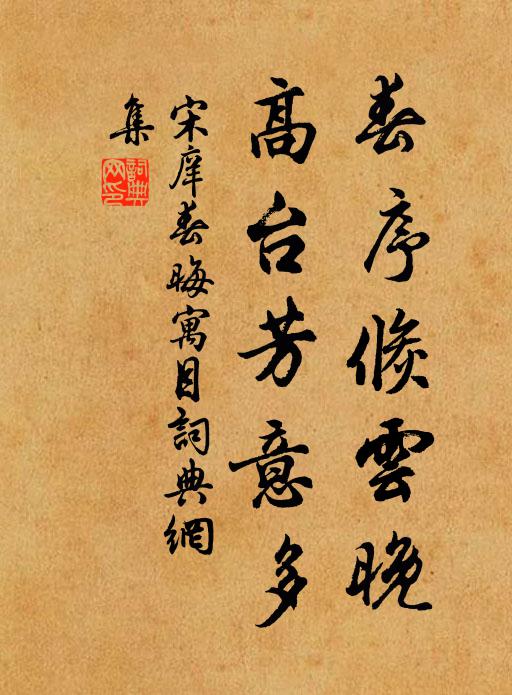 春序倏雲晚
高台芳意多
宋庠春晦寓目詞典網
集
詞典
网印